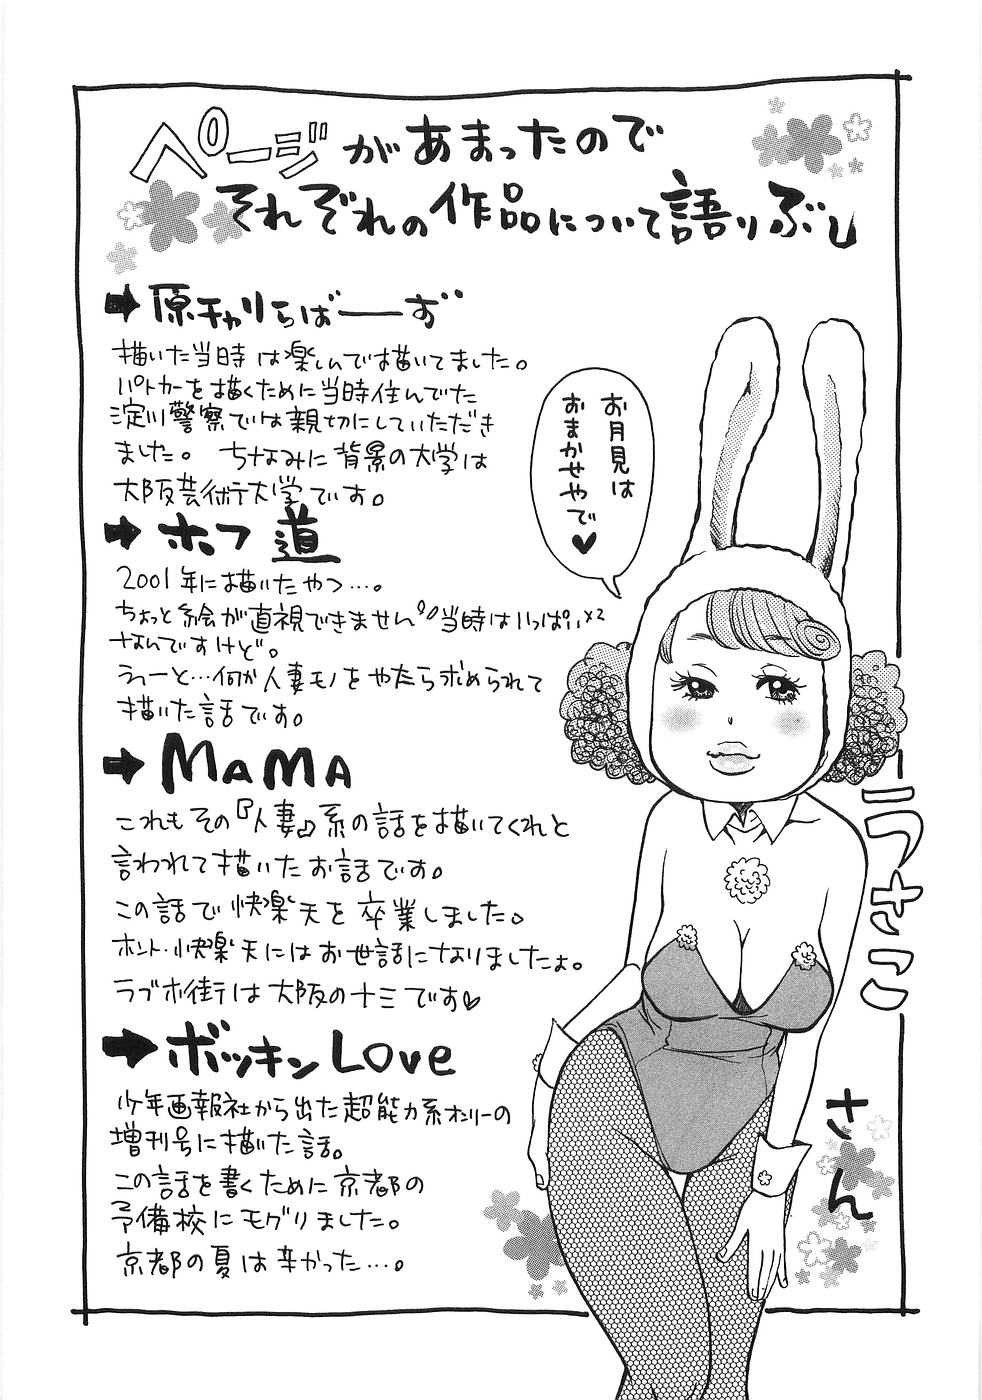 ページがあまったので
それぞれの作品について語りぶし
➡原チャリらばーーず
描いた当時は楽しんで描いてました。
パトカーを描くために当時住んでた
淀川警察では親切にしていただき
ました。 ちなみに背景の大学は
大阪芸術大学です。
➡ホフ道
2001年に描いたやつ…。
ちょっと絵が直視できません 当時はいっぱいx2
なんですけど。
うーーと…何か人妻モノをやたら求められて
描いた話です。
➡MAMA
これもその『人妻』系の話を描いてくれと
言われて描いたお話です。
この話で快楽天を卒業しました。
ホント快楽天にはお世話になりましたょ。
ラブホ街は大阪のナミです♡
➡ボッキンLove
少年画報社から出た超能力系オンリーの
増刊号に描いた話。
この話を書くために京都の
予備校にモグリました。
京都の夏は辛かった…。
お月見は
おまかせやで♥
ラさこ
さん